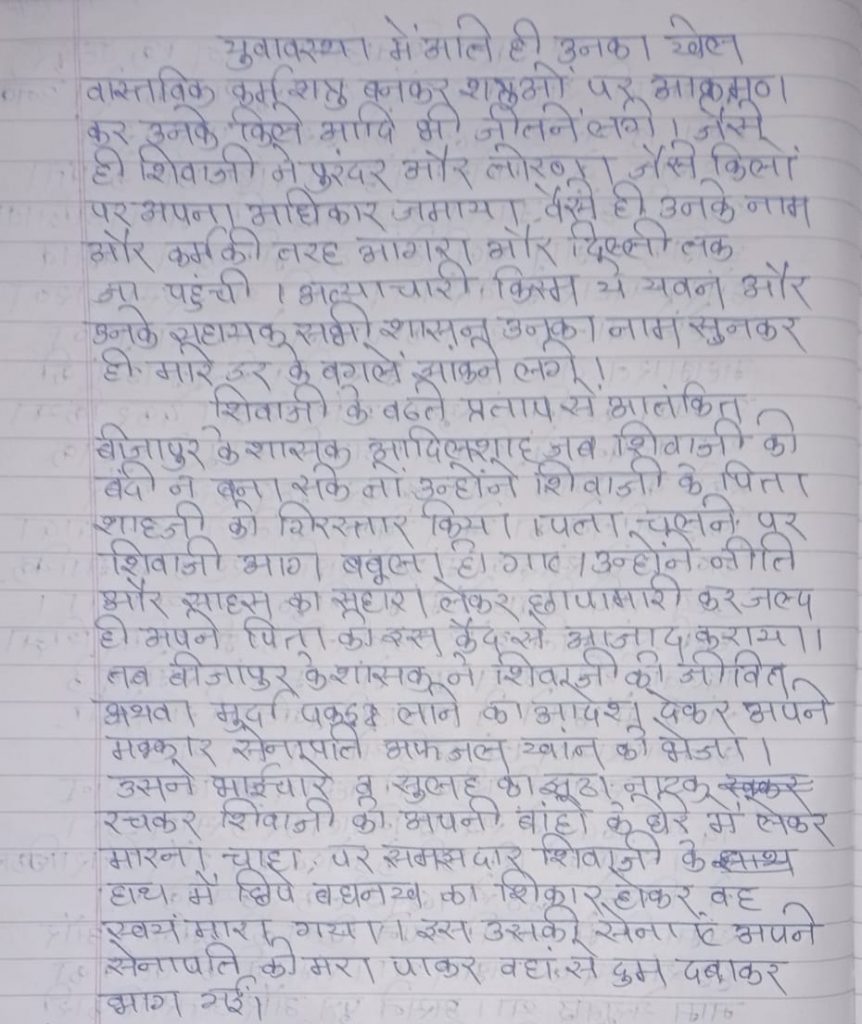 युवावस्था में आते ही उनका खेल
वास्तविक कर्म शत्रु बनकर शत्रुओं पर आक्रमण
कर उनके किले आदि भी जीतने लगे। जैसे
ही शिवाजी ने पुरंदर और तोरण जैसे किलों
पर अपना अधिकार जमाया वैसे ही उनके नाम
और कर्म की तरह आगरा और दिल्ली तक
जा पहुंची। अत्याचारी किस्म ये यवन और
उनके सहायक सभी शासन उनका नाम सुनकर
ही मारे डर के बगलें झाकने लगे।
शिवाजी के बढते प्रताप से आतंकित
बीजापुर के शासक आदिलशाह जब शिवाजी को
बंदी न बना सके तो उन्होंने शिवाजी के पिता
शाहजी को गिरफ्तार किया। पता चलने पर
शिवाजी आग बबूला हो गए। उन्होंने नीति
और साहस का सहारा लेकर छापामारी कर जल्द
ही अपने पिता को इस कैद से आजाद कराया।
तब बीजापुर के शासक ने शिवाजी को जीवित
अथवा मुर्दा पकड़ लाने का आदेश देकर अपने
मक्कार सेनापति अफजल खान को भेजा।
उसने भाईचारे व सुलह का झूठा नाटक
रचकर शिवाजी को अपनी बांहो के घेरे में लेकर
मारना चाहा, पर समझदार शिवाजी के
हाथ में छिपे बघनख का शिकार होकर वह
स्वयं मारा गया। इस उसकी सेनाएं अपने
सेनापति को मरा पाकर वहां से दुम दबाकर
भाग गईं।